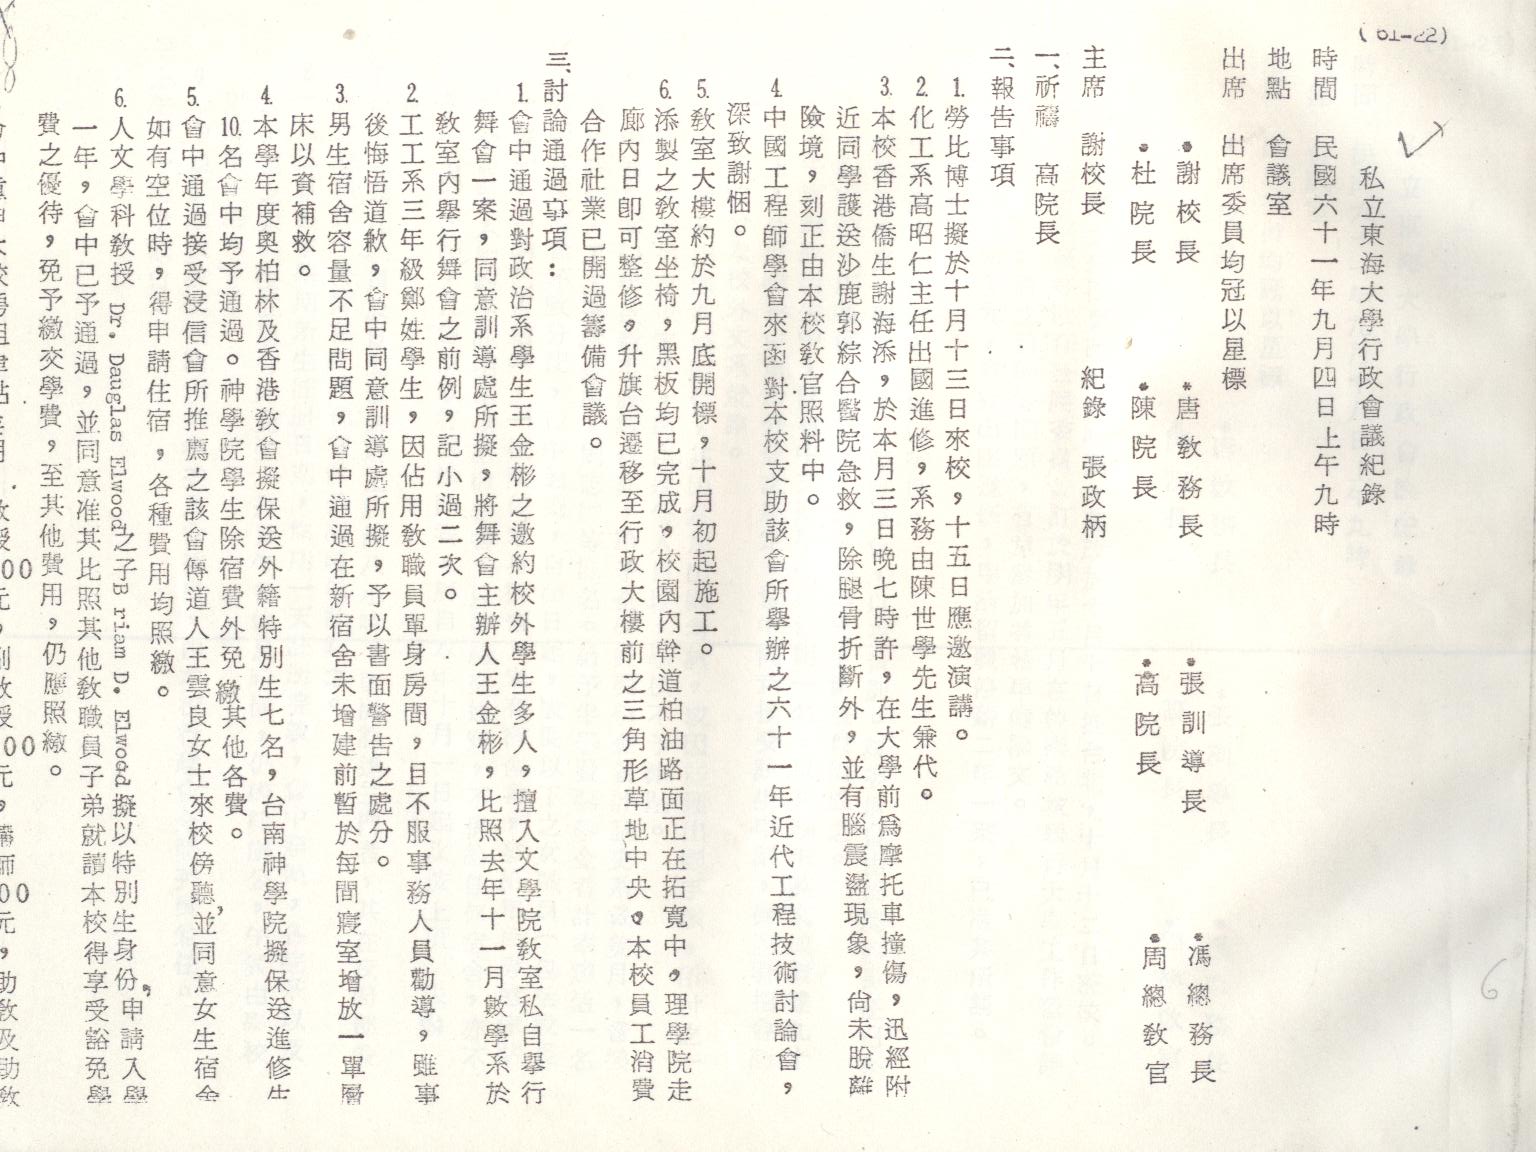 (61-22)
私立東海大學行政會議紀錄
時間　民國六十一年九月四日上午九時
地點　會議室
出席　出席委員均冠以星標
*謝校長　*唐教務長　*張訓導長　*馮總務長
*杜院長　*陳院長　*高院長　*周總教官
主席　謝校長　紀錄　張政柄
一、祈禱　高院長
二、報告事項
1.勞比博士擬於十月十三日來校，十五日應邀演講。
2.化工系高昭仁主任出國進修，系務由陳世學先生兼代。
3.本校香港僑生謝海添，於本月三日晚七時許，在大學前為摩托車撞傷，迅經附
近同學護送沙鹿郭綜合醫院急救，除腿骨折斷外，並有腦震盪現象，尚未脫離
險境，刻正由本校教官照料中。
4.中國工程師學會來函對本校支助該會所舉辦之六十一年近代工程技術討論會，
深致謝悃。
5.教室大樓約於九月底開標，十月初起施工。
6.添製之教室坐椅，黑板均已完成。校園內幹道柏油路面正在拓寬中，理學院走
廊內日即可整修。升旗台遷移至行政大樓前之三角形草地中央。本校員工消費
合作社業已開過籌備會議。
三、討論通過事項：
1.會中通過對政治系學生王金彬之邀約校外學生多人，擅入文學院教室私自舉行
舞會一案，同意訓導處所擬，將舞會主辦人王金彬，比照去年十一月數學系於
教室內舉行舞會之前例，記小過二次。
2.工工系三年級鄭姓學生，因佔用教職員單身房間，且不服事務人員勸導，雖事
後悔悟道歉，會中同意訓導處所擬，予以書面警告之處分。
3.男生宿舍容量不足問題，會中通過在新宿舍未增建前暫於每間寢室增放一單層
床以資補救。
4.本學年度奧柏林及香港教會擬保送外籍特別生七名，台南神學院擬保送進修生
10.名會中均予通過。神學院學生除宿費外免繳其他各費。
5.會中通過接受浸信會所推薦之該會傳道人王雲良女士來校傍聽，並同意女生宿舍
如有空位時，得申請住宿，各種費用均照繳。
6.人文學科教授 Dr. Dauglas Elwood之子B rian D. Elwood擬以特別生身份，申請入學
一年，會中已予通過，並同意准其比照其他教職員子弟就讀本校得享受豁免學
費之優待，免予繳交學費，至其他費用，仍應照繳。